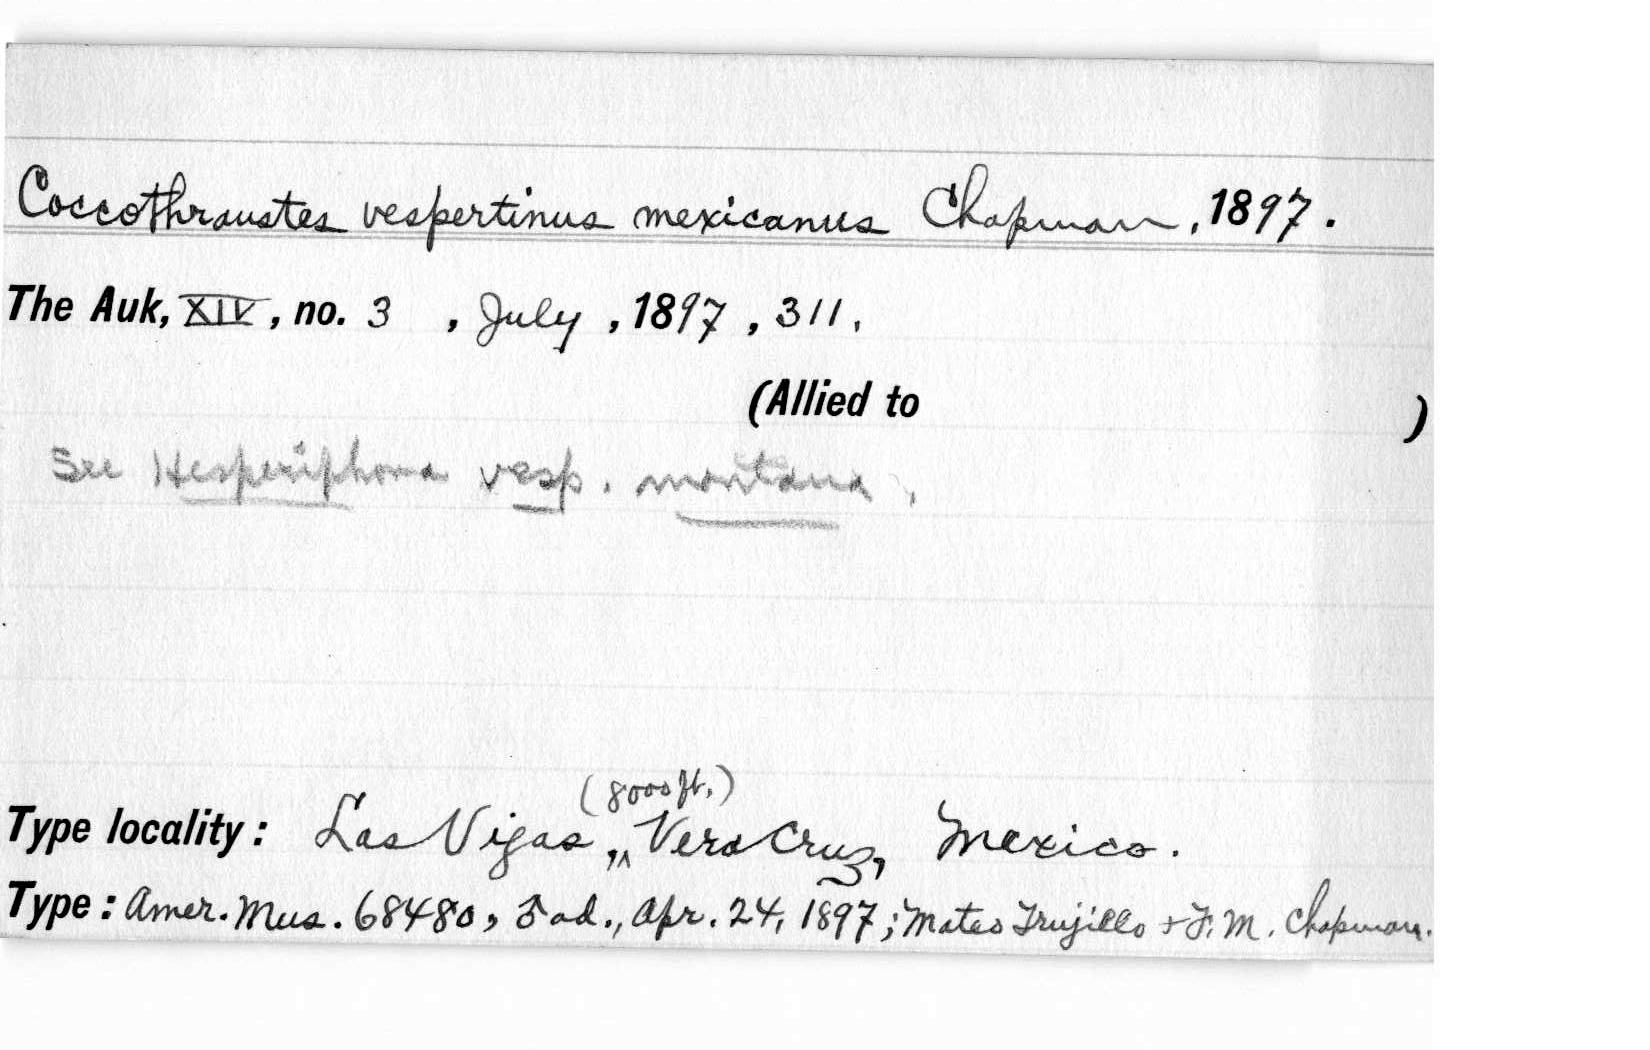 Coccothraustes vespertinus mexicanus Chapman, 1897.
The Auk, XIV, no. 3 , July , 1897 , 311.
(Allied to )
See Hesperiphona vesp. montana.
(8000 ft.)
Type locality: Las Vigas, , Vera Cruz, Mexico.
Type: Amer. Mus. 68480, ♂ ad., Apr. 24, 1897; Mateo Trujillo + F. M. Chapman.